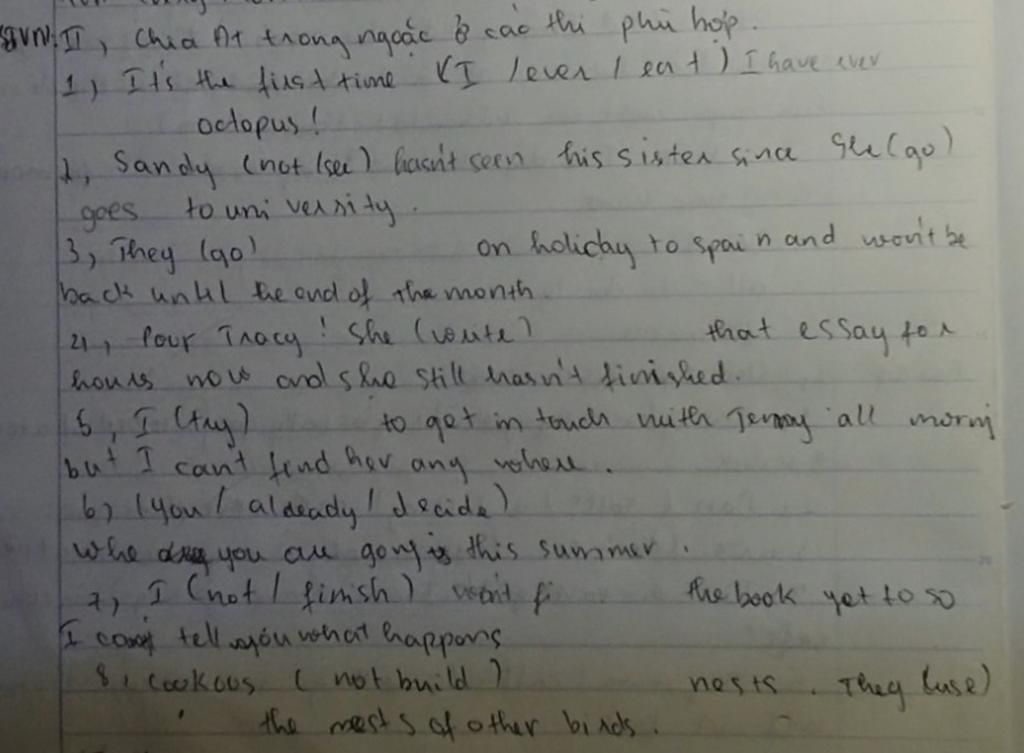 BVN II, Chia ĐT trong ngoặc ở các thì phù hợp.
1, It's the first time (I / ever / eat) I have ever
octopus!
2, Sandy (not/see) hasn't seen his sister since She (go)
goes to university.
3, They (go) on holiday to spain and won't be
back until the end of the month.
4, Pour Tracy! She (write) that essay for
hours now and she still hasn't finished.
5, I (try) to get in touch with Jenny all morni
but I can't find her any where.
6, (you / aldeady / decide)
Whe you are going this summer.
7, I (not / finish) the book yet to so
I can't tell you what happens
8, Cookoos (not build) nests. They (use)
the nests of other birds.